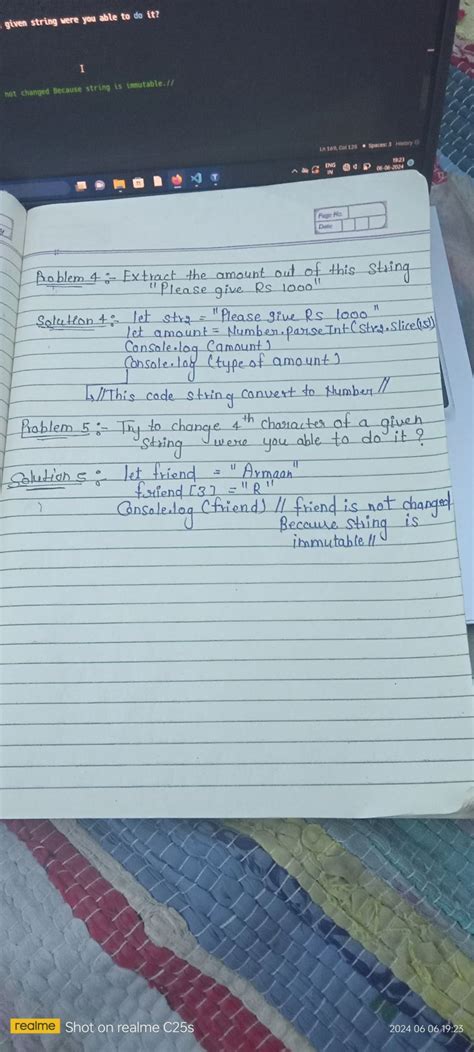 given string were you able to do it?
not changed Because string is immutable.//
Ln 169, Col 139 Spaces: 3 History
ENG
IN
19:23
06-06-2024
Page No.
Date
Problem 4 :- Extract the amount out of this string
"Please give Rs 1000"
Solution 4 :- let str2 = "Please give Rs 1000"
let amount = Number.parseInt(str2.slice(15))
Console.log (amount)
Console.log (type of amount)
//This code string convert to Number//
Problem 5 :- Try to change 4th character of a given
string were you able to do it ?
Solution 5 : let friend = "Armaan"
friend [3] = "R"
Console.log (friend) // friend is not changed
Because string is
immutable//
realme Shot on realme C25s
2024 06 06 19:23